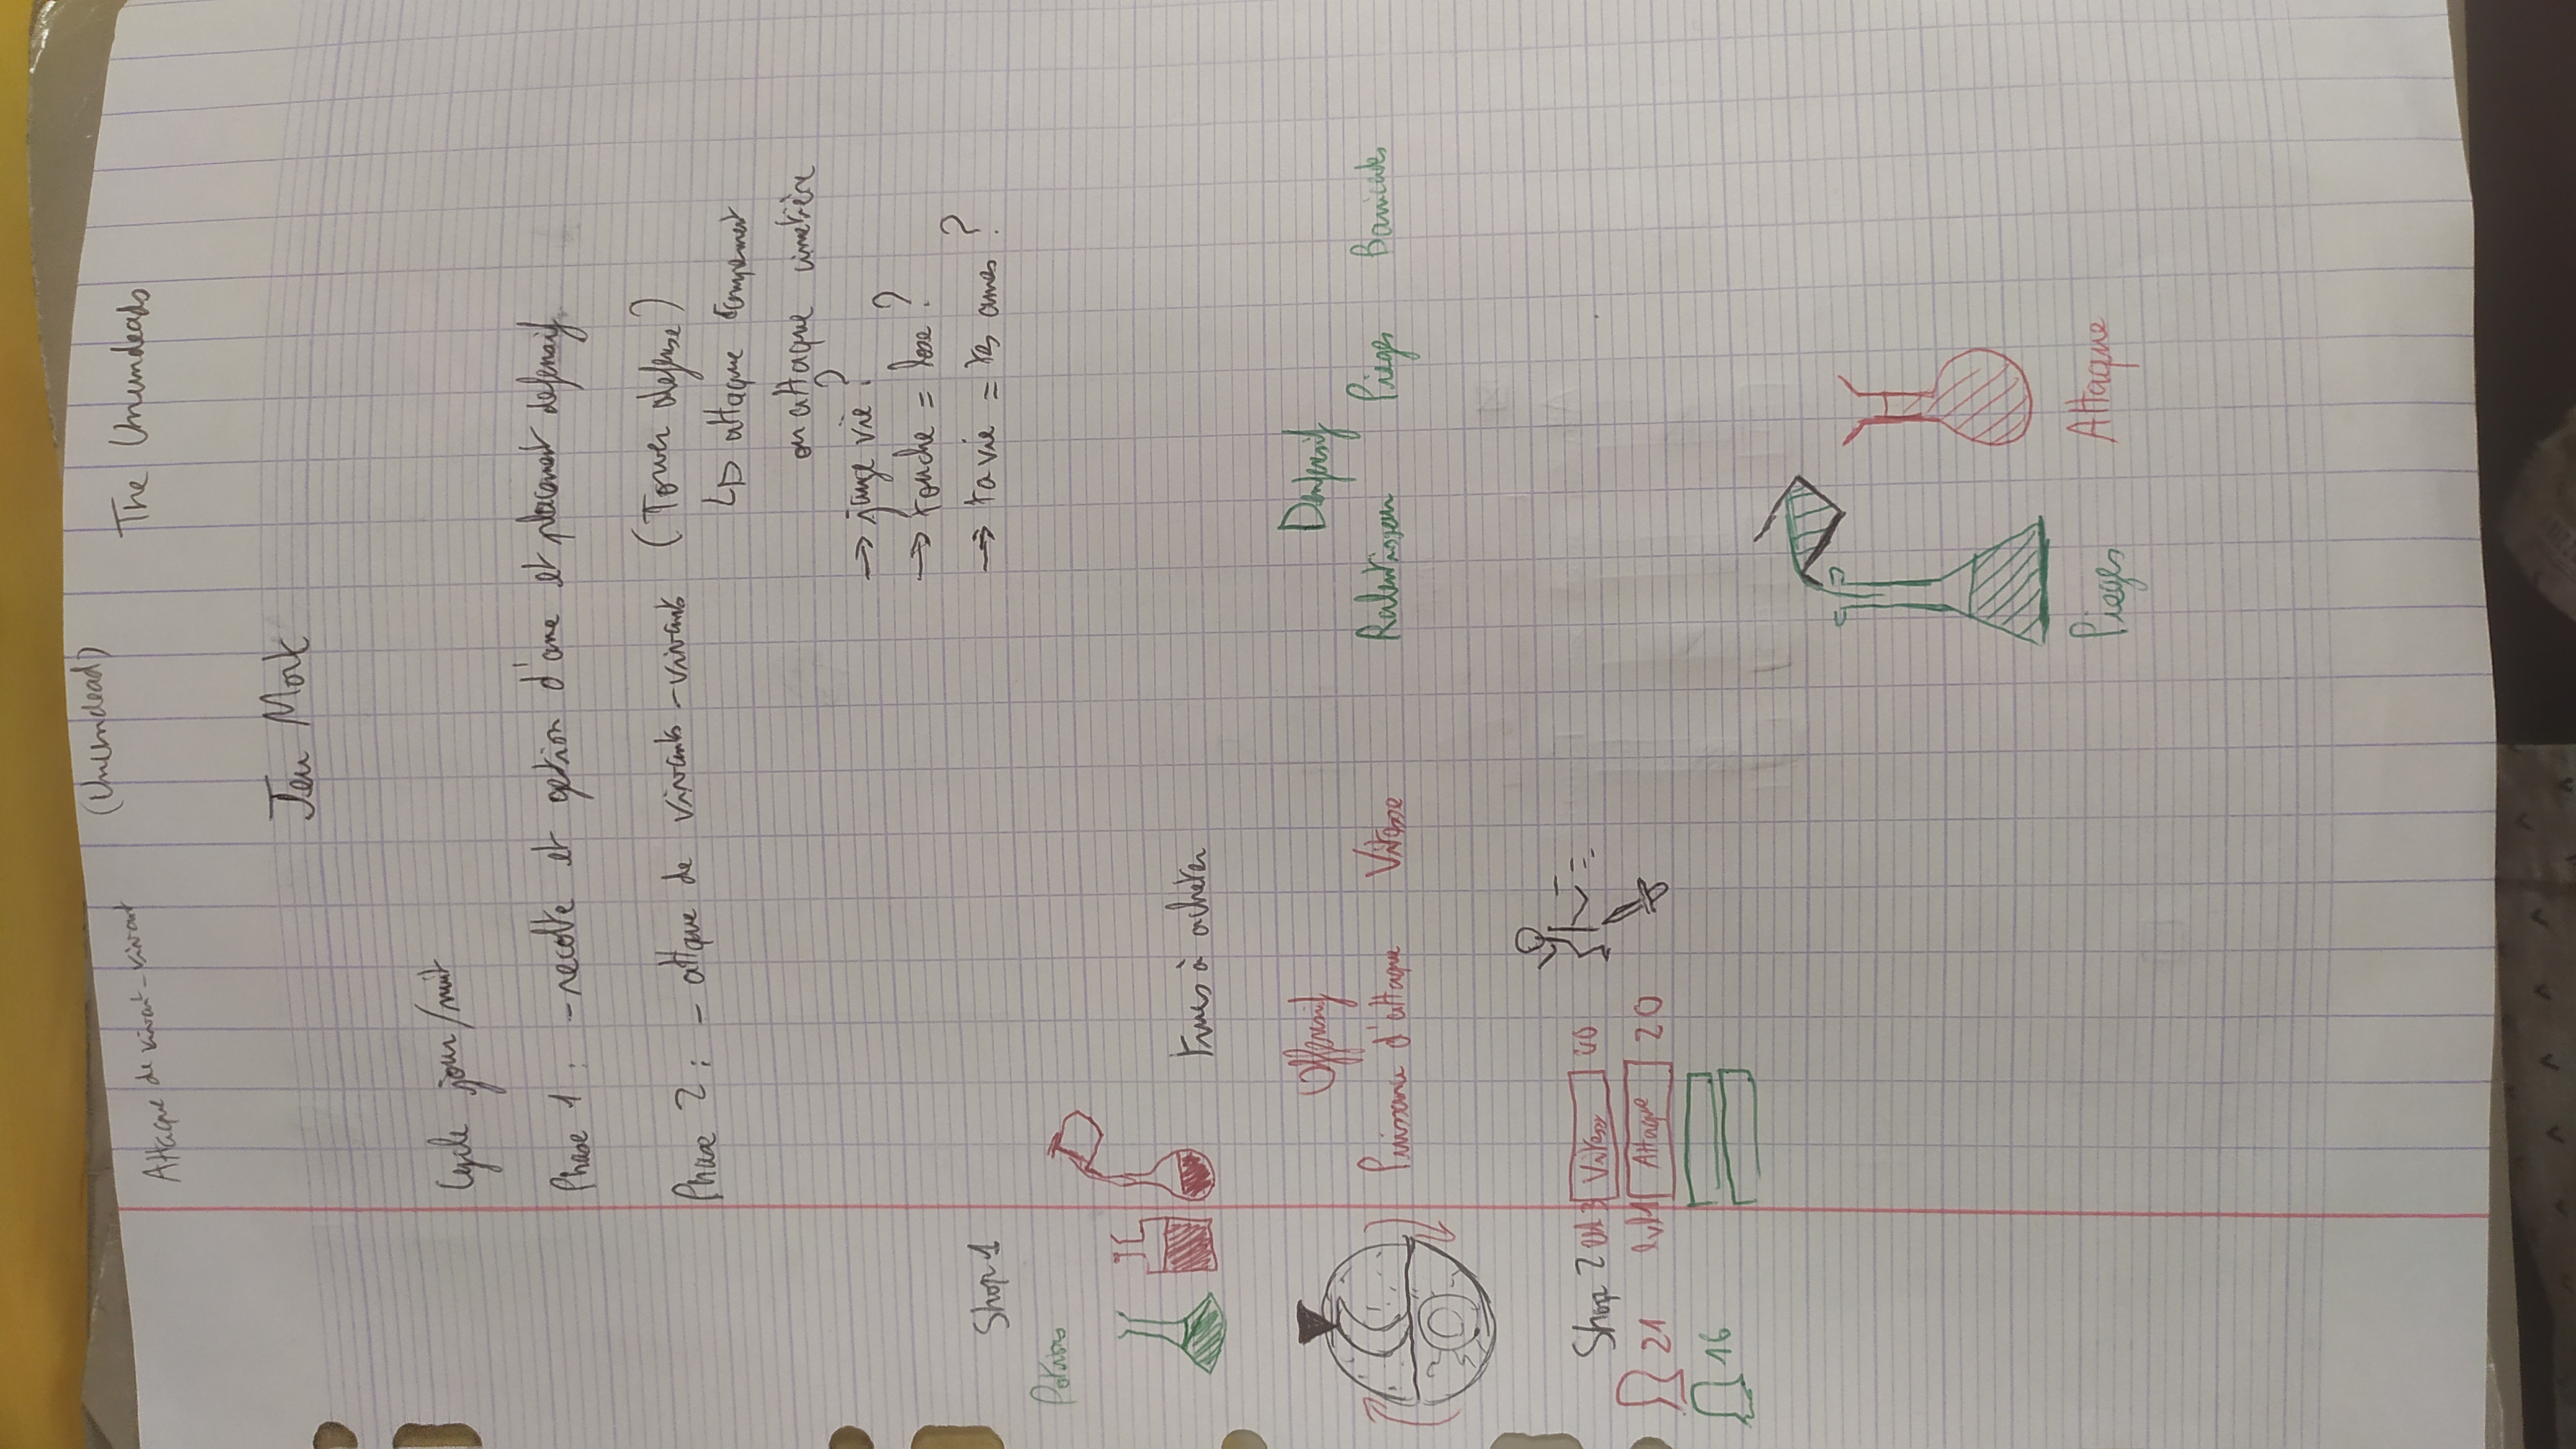 (Unundead)
Attaque de vivant-vivant
The Unundeads
Jeu Mort
Cycle jour/nuit
Phase 1 : - recolte et gestion d'ame et placement defensif
Phase 2 : - attque de vivants-vivants (Tower defense?)
attaque
ou attaque cimetière
→ jauge vie ?
→ touche = lose ?
→ ta vie = tes ames ?
Shop 1
Potions
trucs à acheter
Offensif
Denfensif
Puissance d'attaque Vitesse
Ralentisseur Pieges Barricades
Shop 2
Vitesse 40
21 lvl1 Attaque 20
16
Pieges Attaque